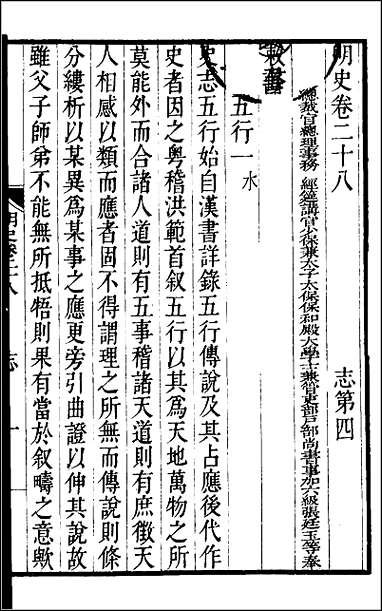 明史卷二十八 志第四
總裁官總理事務 經筵講官少保兼太子太保保和殿大學士兼管吏部戶部尚書事加六級張廷玉等奉
敕修
五行一水
史志五行始自漢書詳錄五行傳說及其占應後代作
史者因之粵稽洪範首叙五行以其為天地萬物之所
莫能外而合諸人道則有五事稽諸天道則有庶徵天
人相感以類而應者固不得謂理之所無而傳說則條
分縷析以某異為某事之應更旁引曲證以伸其說故
雖父子師弟不能無所抵牾則果有當於叙疇之意歟
明史卷二十八 志 一